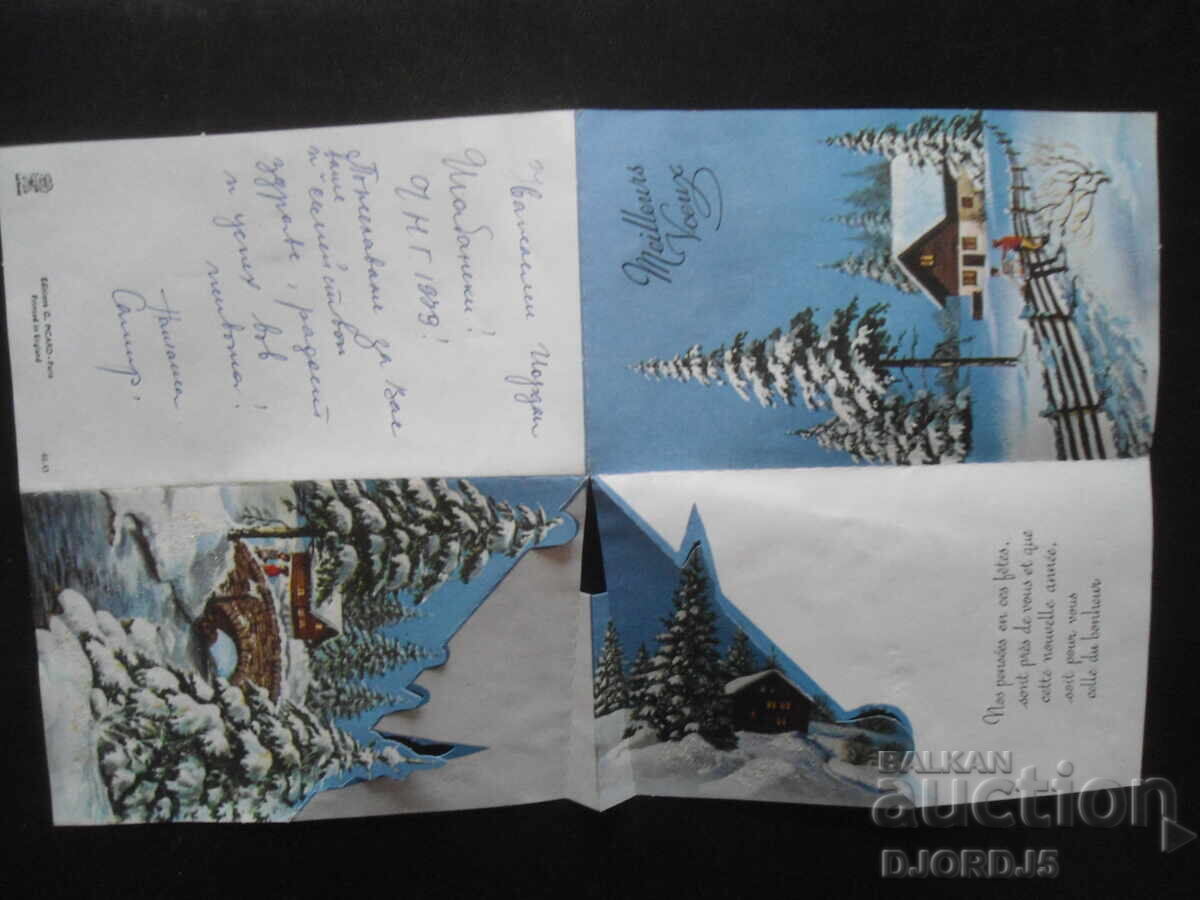 Уважаеми Йордан
Шабански!
ЧНГ 1939!
Пожелавам за Вас
и семейството
ваше
здраве, радост
и успех във
живота!
Самир.
Editions G. PICARD - Paris
Printed in England
Meilleurs
Voeux
Nos pensées en ces fêtes,
sont près de vous et que
cette nouvelle année,
soit pour vous
celle du bonheur
BALKAN
auction
DJORDJ5